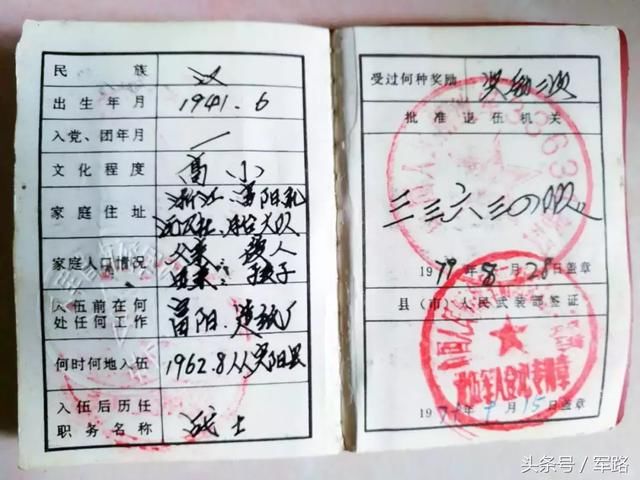 民族 汉
出生年月 1941.6
入党、团年月 /
文化程度 高小
家庭住址 浙江 富阳
大队
家庭人口情况 父亲 爱人
母亲 孩子
入伍前在何
处任何工作 富阳 造纸厂
何时何地入伍 1962.8从富阳县
入伍后历任
职务名称 战士
受过何种奖励 奖励二次
批准退伍机关
三三六三〇部队
1979年8月28日盖章
县(市)人民武装部签证
退伍军人登记专用章
197 年 月15日盖章
头条号/军路